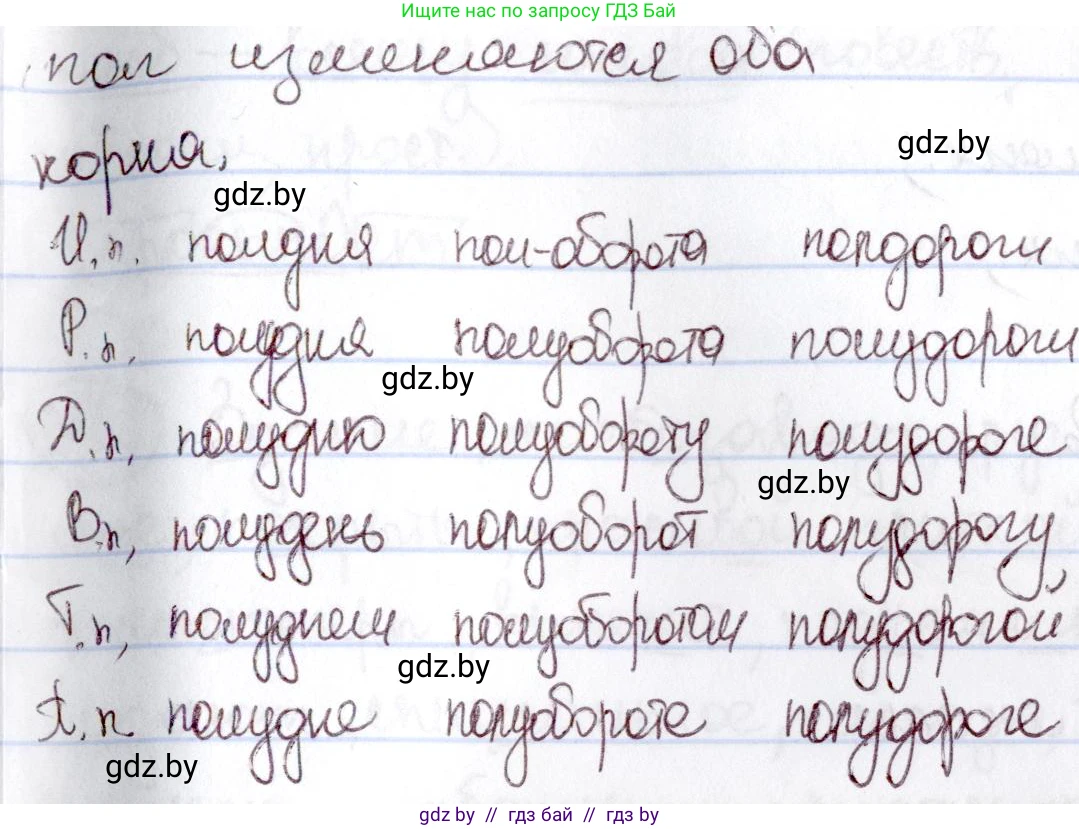 Ищите нас по запросу ГДЗ Бай
пол изменяются оба
gdz.by
корня.
gdz.by
И.п. полдня пол-оборота полдороги
Р.п. полудня полуоборота полудороги
gdz.by
Д.п. полудню полуобороту полудороге
gdz.by
В.п. полудень полуоборот полудорогу
Т.п. полуднем полуоборотом полудорогой
gdz.by
П.п полудне полуобороте полудороге
gdz.by
gdz by // гдз бай // гдз by